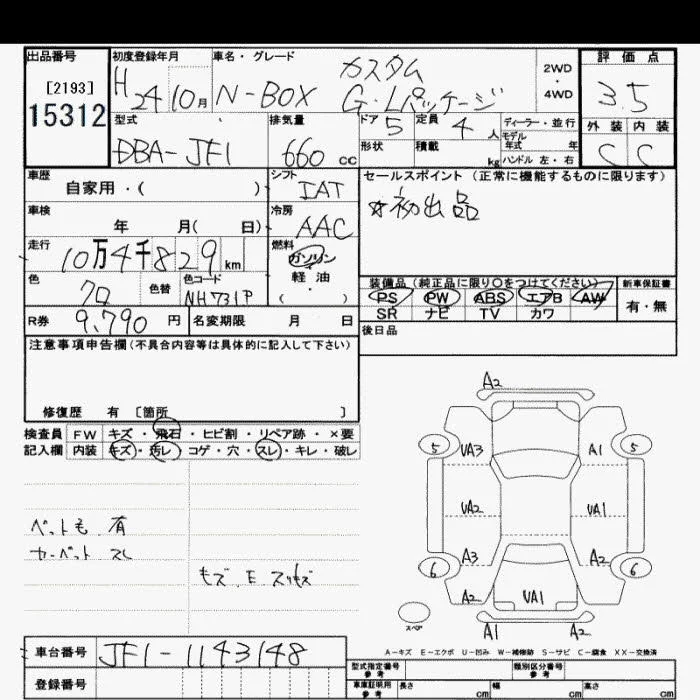 出品番号 初度登録年月 車名・グレード 評価点
[2193] H 24 10月 N-BOX カスタム 2WD・4WD 3.5
15312 G・Lパッケージ
型式 排気量 ドア 5 定員 4人 ディーラー・並行 外装 内装
DBA-JF1 660cc 形状 積載 kg モデル年式 年 C C
ハンドル 左・右
車歴 自家用・( ) シフト IAT セールスポイント (正常に機能するものに限ります)
車検 年 月( 日) 冷房 AAC ☆初出品
走行 10万4千829km 燃料 ガソリン・軽油・( )
色 クロ 色替 色コード NH731P
装備品(純正品に限り○をつけてください) 新車保証書
PS PW ABS エアB AW 有・無
SR ナビ TV カワ
R券 9,790円 名変期限 月 日 後日品
注意事項申告欄(不具合内容等は具体的に記入して下さい)
修復歴 有 〔箇所 〕
検査員 FW キズ・飛石・ヒビ割・リペア跡・×要
記入欄 内装 キズ・汚レ・コゲ・穴・スレ・キレ・破レ
ペット毛 有
カーペット スレ
A2
5 UA3 A1 5
UA2 UA1
6 A3 A2 6
A2 UA1 A2
スペア A1 A2
A-キズ E-エクボ U-凹み W-補修跡 S-サビ C-腐食 XX-交換済
車台番号 JF1-1143148
登録番号
型式指定番号 参考 類別区分番号 参考
車庫証明用 参考 長さ cm 幅 cm 高さ cm